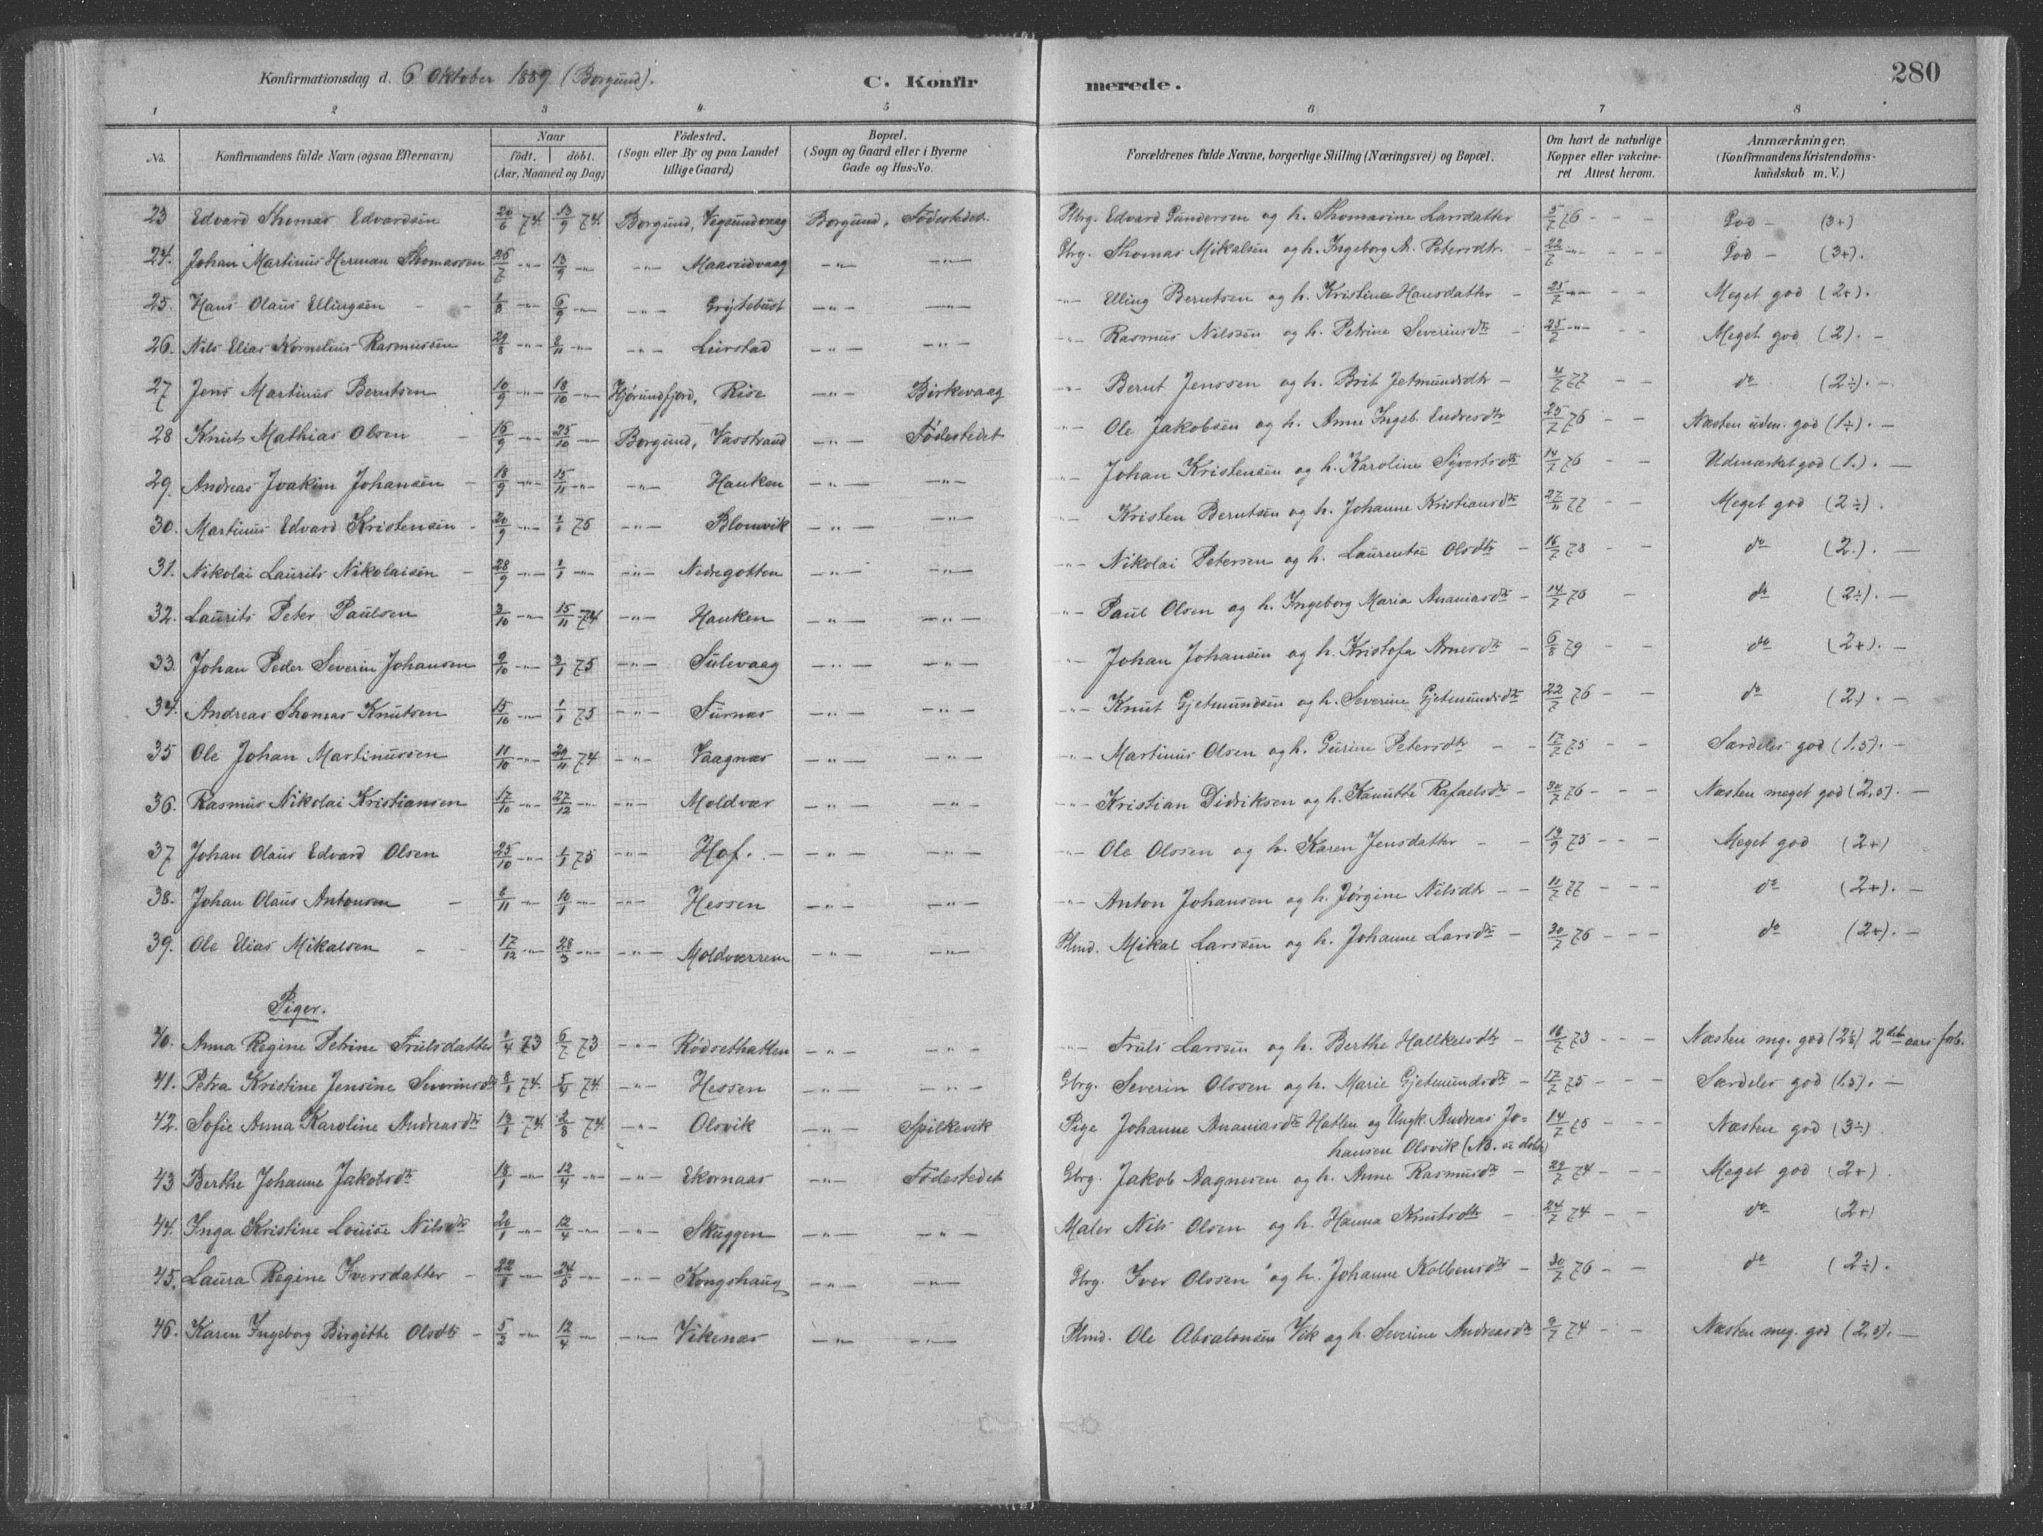 Konfirmationsdag d. 6 Oktober 1889 (Borgund). C. Konfirmerede. 280
1 2 3 4 5 6 7 8
No. Konfirmandens fulde Navn (ogsaa Efternavn) Naar født. døbt. (Aar, Maaned og Dag) Fødested. (Sogn eller By og paa Landet tillige Gaard) Bopæl. (Sogn og Gaard eller i Byerne Gade og Hus-No. Forældrenes fulde Navne, borgerlige Stilling (Næringsvei) og Bopæl. Om havt de naturlige Kopper eller vakcineret Attest herom. Anmærkninger. (Konfirmandens Kristendomskundskab m. V.)
23 Edvard Thomas Edvardsen 20/6 74. 13/9 74. Borgund, Vegsundvaag Borgund, Fødestedet Pbrg. Edvard Gundersen og h. Thomasine Larsdatter 5/7 76 - - - God - (3+)
24. Johan Martinus Herman Thomassen 26/7 -"- 13/9 -"- -"- Maaseidvaag -"- -"- Gbrg. Thomas Mikalsen og h. Ingeborg A. Petersdtr - 22/7 -"- - - - God - (3+).
25. Hans Olaus Ellingsen - - 1/8 -"- 6/9 -"- -"- Grytebust -"- -"- -"- Elling Berntsen og h. Kristine Hansdatter - 25/7 -"- - - Meget god (2+).
26. Nils Elias Kornelius Rasmussen 29/8 -"- 8/11 -"- -"- Leirstad -"- -"- -"- Rasmus Nilssen og h. Petrine Severinsdtr - 25/7 -"- - - Meget god (2). -
27 Jens Martinus Berntsen 10/9 -"- 18/10 -"- Hjørundfjord, Rise -"- Birkevaag -"- Bernt Jenssen og h. Brit Jetmundsdtr - 4/7 77 - - do (2÷). -
28 Knut Mathias Olsen - 16/9 -"- 25/10 -"- Borgund, Vasstrand -"- Fødestedet -"- Ole Jakobsen og h. Anne Ingeb. Endresdtr 25/7 76 - - Næsten udm. god (1÷). -
29. Andreas Joakim Johansen - 18/9 -"- 15/11 -"- -"- Hauken -"- -"- -"- Johan Kristensen og h. Karoline Syvertsdtr 14/7 76 - - Udmærket god (1.). -
30. Martinus Edvard Kristensen - 20/9 -"- 1/1 75 -"- Blomvik -"- -"- -"- Kristen Berntsen og h. Johanne Kristiansdtr 27/11 77 - - Meget god (2÷).
31. Nikolai Laurits Nikolaisen - 28/9 -"- 1/1 -"- -"- Nedregotten -"- -"- -"- Nikolai Petersen og h. Laurentse Olsdtr - 16/7 78 - - do (2.). -
32. Laurits Peter Paulsen 3/10 -"- 15/11 74 -"- Hauken -"- -"- -"- Paul Olsen og h. Ingeborg Maria Ananiasdtr - 14/7 76 - do (2÷). -
33. Johan Peder Severin Johansen 9/10 -"- 3/1 75 -"- Sulevaag -"- -"- -"- Johan Johansen og h. Kristofa Arnesdtr - 6/8 79 - - do (2+). -
34. Andreas Thomas Knutsen 15/10 -"- 1/1 75 -"- Furnæs -"- -"- -"- Knut Gjetmundsen og h. Severine Gjetmundsdtr 22/7 76 - - do (2.). -
35 Ole Johan Martinussen 11/10 -"- 29/11 74 -"- Vaagnæs -"- -"- -"- Martinus Olsen og h. Gurine Petersdtr - - 17/7 75 - - Særdeles god (1,5). -
36. Rasmus Nikolai Kristiansen 17/10 -"- 27/12 -"- -"- Moldvær -"- -"- -"- Kristian Didriksen og h. Kanutte Rafaelsdtr - 30/7 76 - - - Næsten meget god (2,5). -
37 Johan Olaus Edvard Olsen 25/10 -"- 1/1 75 -"- Hof. - -"- -"- -"- Ole Olssen og h. Karen Jensdatter - - 19/9 75 - - - Meget god (2+)
38. Johan Olaus Antonsen - 8/11 -"- 10/1 -"- -"- Hessen -"- -"- -"- Anton Johansen og h. Jørgine Nilsdtr - - 11/7 77 - - - do (2+). -
39. Ole Elias Mikalsen - - 17/12 -"- 28/3 -"- -"- Moldværrem -"- -"- Plmd. Mikal Larssen og h. Johanne Larsdtr - 30/7 76 - - - do (2+). -
Piger.
40. Anna Regine Petrine Trulsdatter 1/4 73 6/7 73 -"- Rødsethatten -"- -"- -"- Truls Larssen og h. Berthe Hallkelsdtr - 16/7 73 - - - Næsten mg. god (2½) 2det aars forb.
41. Petra Kristine Jensine Severinsdtr 8/1 74. 5/4 74. -"- Hessen -"- -"- Gbrg. Severin Olssen og h. Marie Gjetmundsdtr - 17/7 75 - - - Særdeles god (1,5). -
42. Sofie Anna Karoline Andreasdtr 13/1 74. 2/8 74. -"- Olsvik -"- Spilkevik Pige Johanne Ananiasdtr Hatlen og Ungk. Andreas Jo- 14/7 75 - - - Næsten god (3÷).
hansen Olsvik
43 Berthe Johanne Jakobsdtr 18/1 -"- 12/4 -"- -"- Ekornaas -"- Fødestedet Gbrg. Jakob Aagnesen og h. Anne Rasmusdtr - 29/7 74 - - - Meget god (2+).
44. Inga Kristine Louise Nilsdtr 20/1 -"- 12/4 -"- -"- Skuggen -"- -"- Maler Nils Olsen og h. Hanna Knutsdtr - 24/7 74 - - do (2+)
45. Laura Regine Iversdatter - 22/1 -"- 24/5 -"- -"- Kongshaug -"- -"- Gbrg. Iver Olssen og h. Johanne Kolbensdtr - 30/7 76 - - do (2÷).
46. Karen Ingeborg Birgitte Olsdtr - 5/2 -"- 12/4 -"- -"- Vikenæs -"- -"- Plmd. Ole Absalonsen Vik og h. Severine Andreasdtr 9/7 74 - - - Næsten meg. god (2,5). -